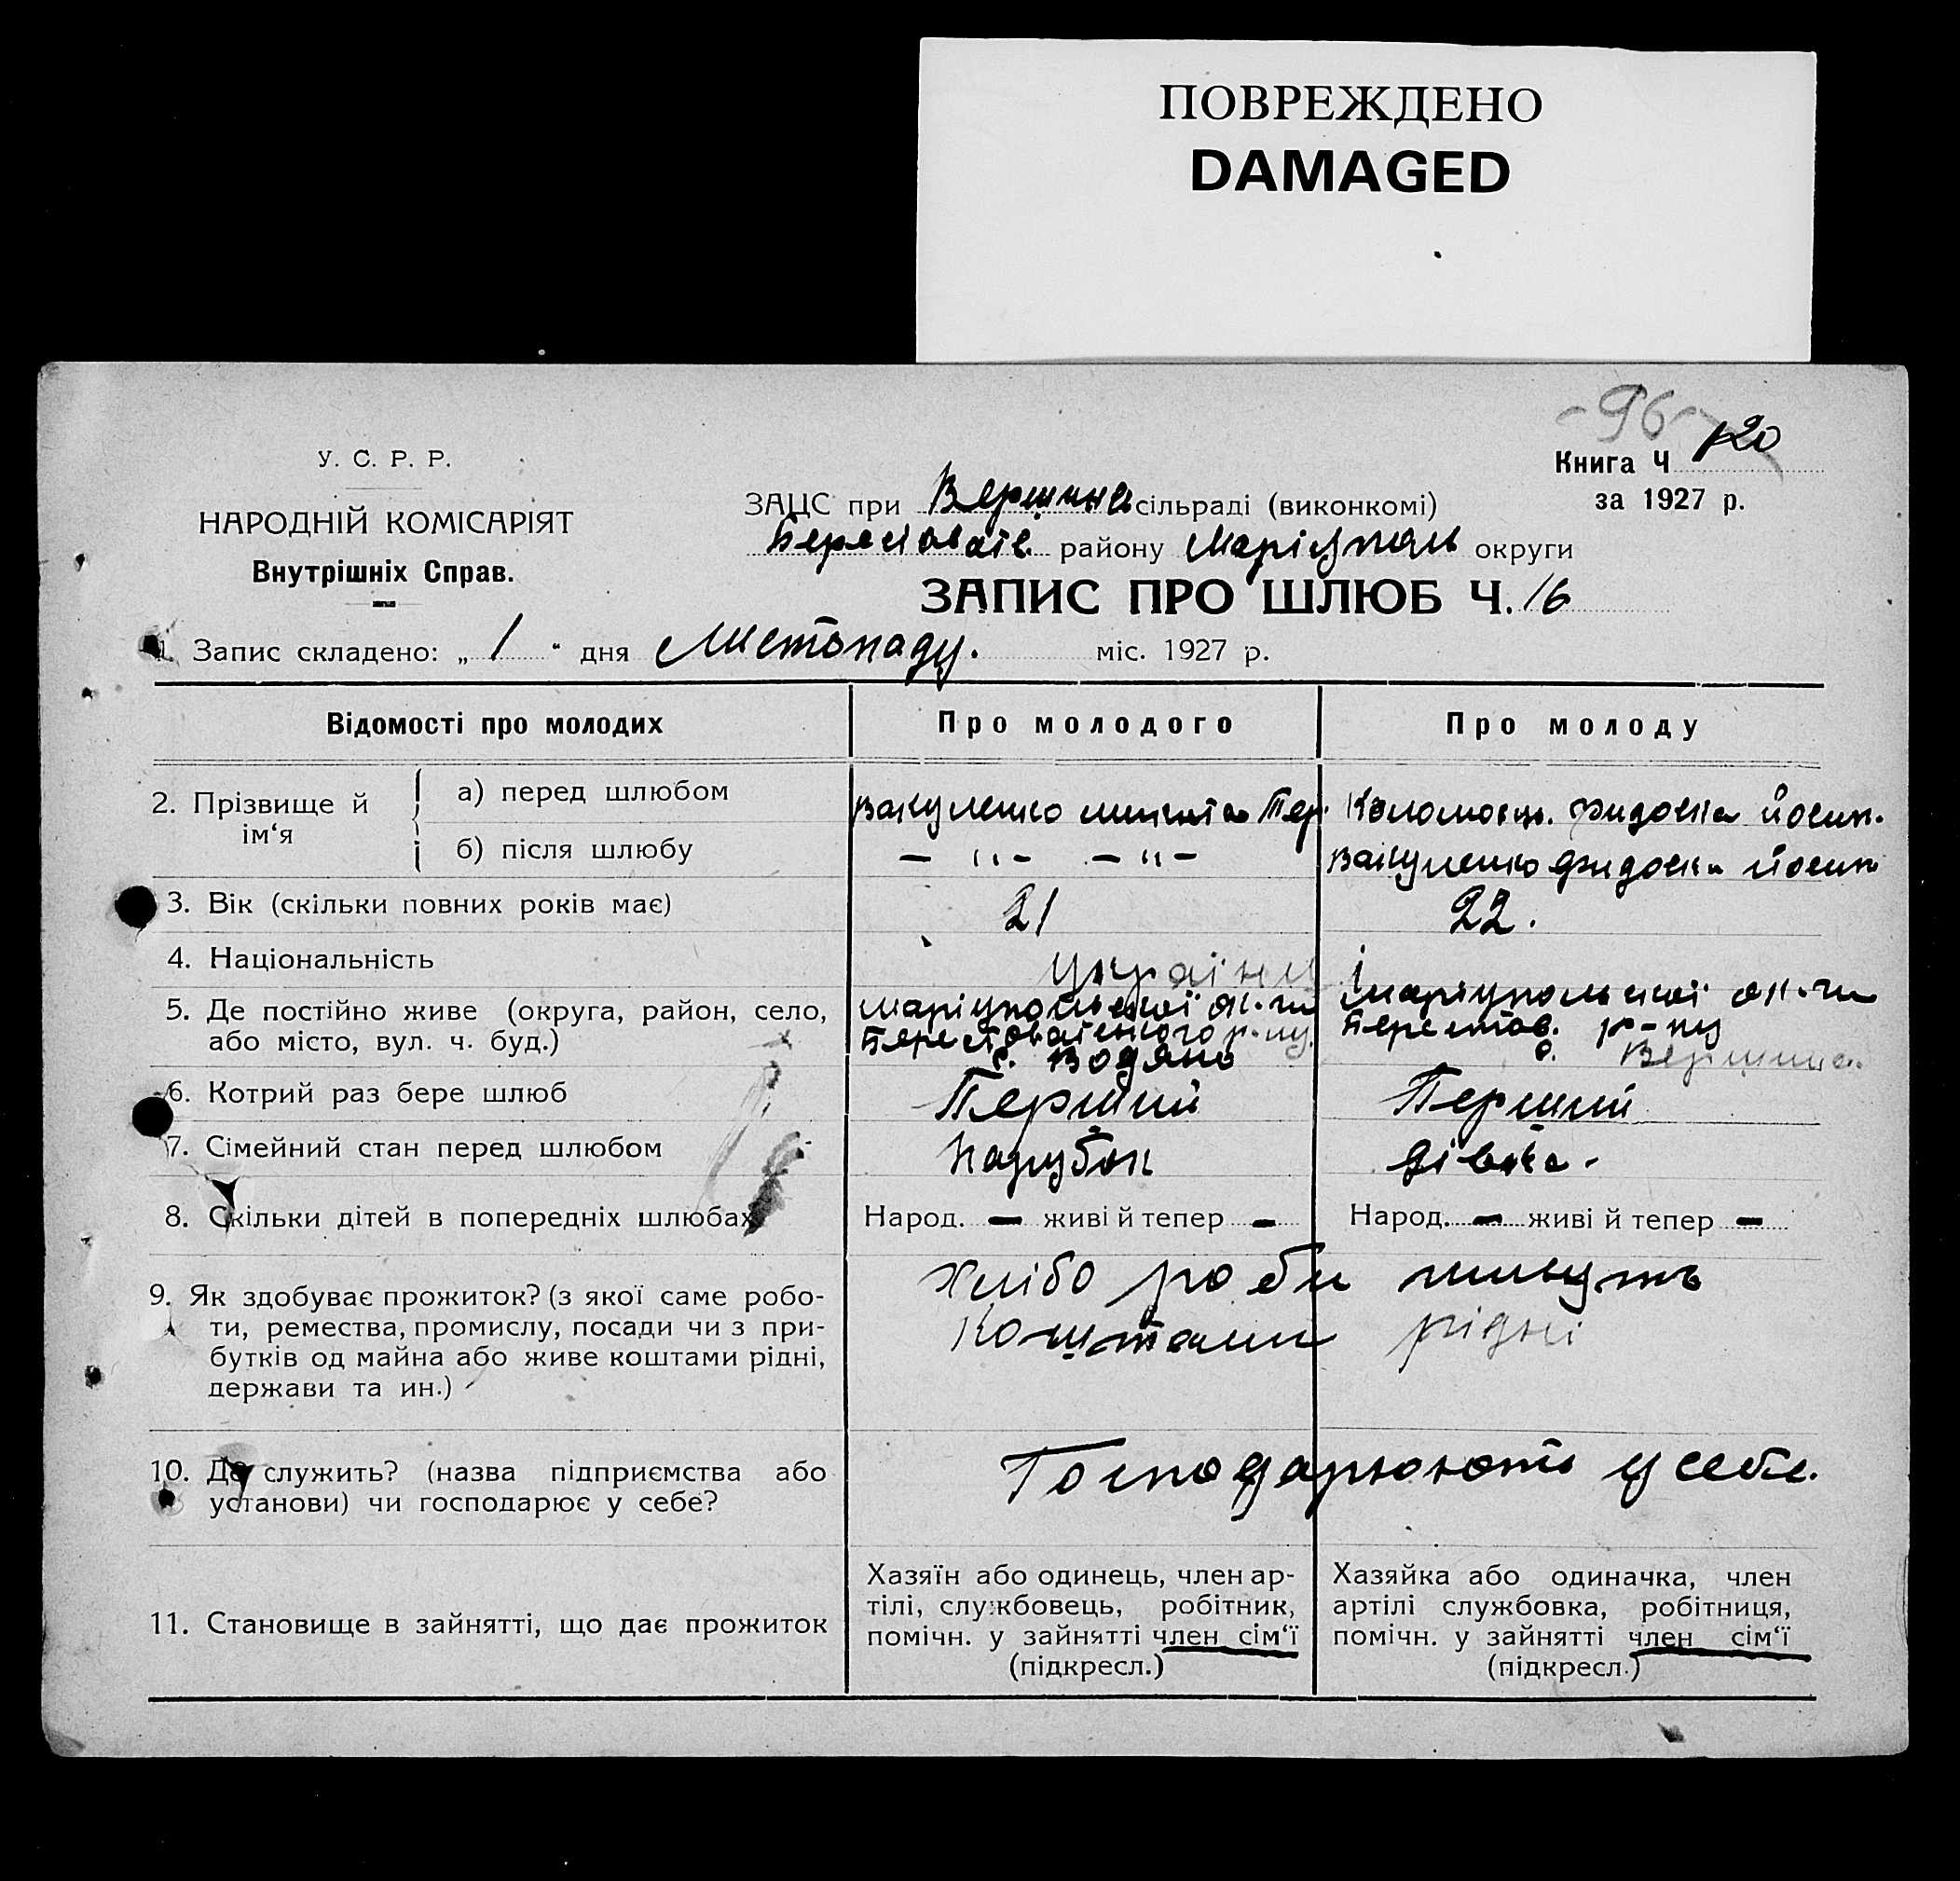 ПОВРЕЖДЕНО
DAMAGED
-96-
Книга Ч 120
за 1927 р.
У. С. Р. Р.
НАРОДНІЙ КОМІСАРІЯТ
Внутрішніх Справ.
ЗАЦС при Вершина сільраді (виконкомі)
Берестоват. району Маріуполь округи
ЗАПИС ПРО ШЛЮБ Ч. 16
1. Запис складено: „ 1 “ дня Листопаду. міс. 1927 р.
Відомості про молодих Про молодого Про молоду
2. Прізвище й ім‘я
а) перед шлюбом Вакуленко Микита Коломоєць. Фидоска Йосип.
б) після шлюбу — " — — " — Вакуленко Фидоска Йосип
3. Вік (скільки повних років має) 21 22.
4. Національність україн
5. Де постійно живе (округа, район, село, Маріупольської ок-ги Маріупольської ок-ги
або місто, вул. ч. буд.) Берестоватського р-ну. Берестов. р-ну
с. Водяно с. Вершина.
6. Котрий раз бере шлюб Перший Перший
7. Сімейний стан перед шлюбом Парубок дівка.
8. Скільки дітей в попередніх шлюбах Народ. — живі й тепер — Народ. — живі й тепер —
9. Як здобуває прожиток? (з якої саме робо- Хлібороби живуть
ти, ремества, промислу, посади чи з при- Коштами рідні
бутків од майна або живе коштами рідні,
держави та ин.)
10. Де служить? (назва підприємства або Господарюють у себе.
установи) чи господарює у себе?
11. Становище в зайнятті, що дає прожиток
Хазяїн або одинець, член ар-
тілі, службовець, робітник,
помічн. у зайнятті член сім‘ї
(підкресл.)
Хазяйка або одиначка, член
артілі службовка, робітниця,
помічн. у зайнятті член сім‘ї
(підкресл.)